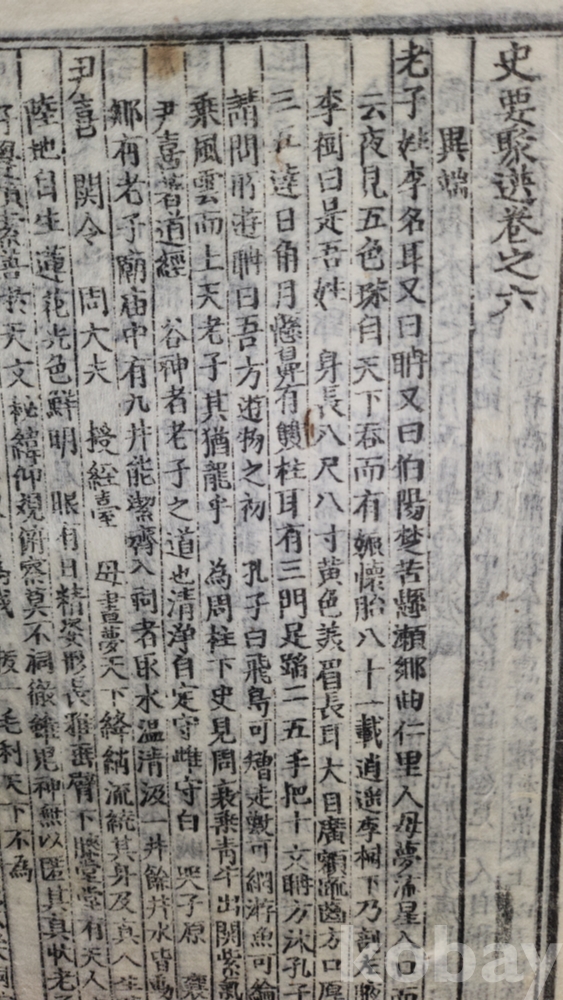 史要聚選卷之六
異端
老子姓李名耳又曰聃又曰伯陽楚苦縣瀨鄉曲仁里人母夢流星入口而
云夜見五色珠自天下吞而有娠懷胎八十一載逍遙李樹下乃剖左腋
李樹曰是吾姓 身長八尺八寸黃色美眉長耳大目廣額疏齒方口厚
三五達日角月懸鼻有雙柱耳有三門足蹈二五手把十文聃方沐孔子
請問所遊聃曰吾方遊物之初 孔子曰飛鳥可矰走獸可網游魚可綸
乘風雲而上天老子其猶龍乎 為周柱下史見周衰乘靑牛出關紫氣
尹喜著道經 谷神者老子之道也清淨自定守雌守白 原
鄉有老子廟廟中有九井能潔齋入祠者水溫清汲一井餘井水皆動
尹喜 關令 周大夫 授經臺 母晝夢天下絳綃流繞其身及真人生
陸地自生蓮花光色鮮明 眼有日精姿形長雅垂臂下膝堂堂有天人
天文秘緯仰觀俯察莫不洞徹雖鬼神無以匿其眞狀老子
拔一毛利天下不為
kobay